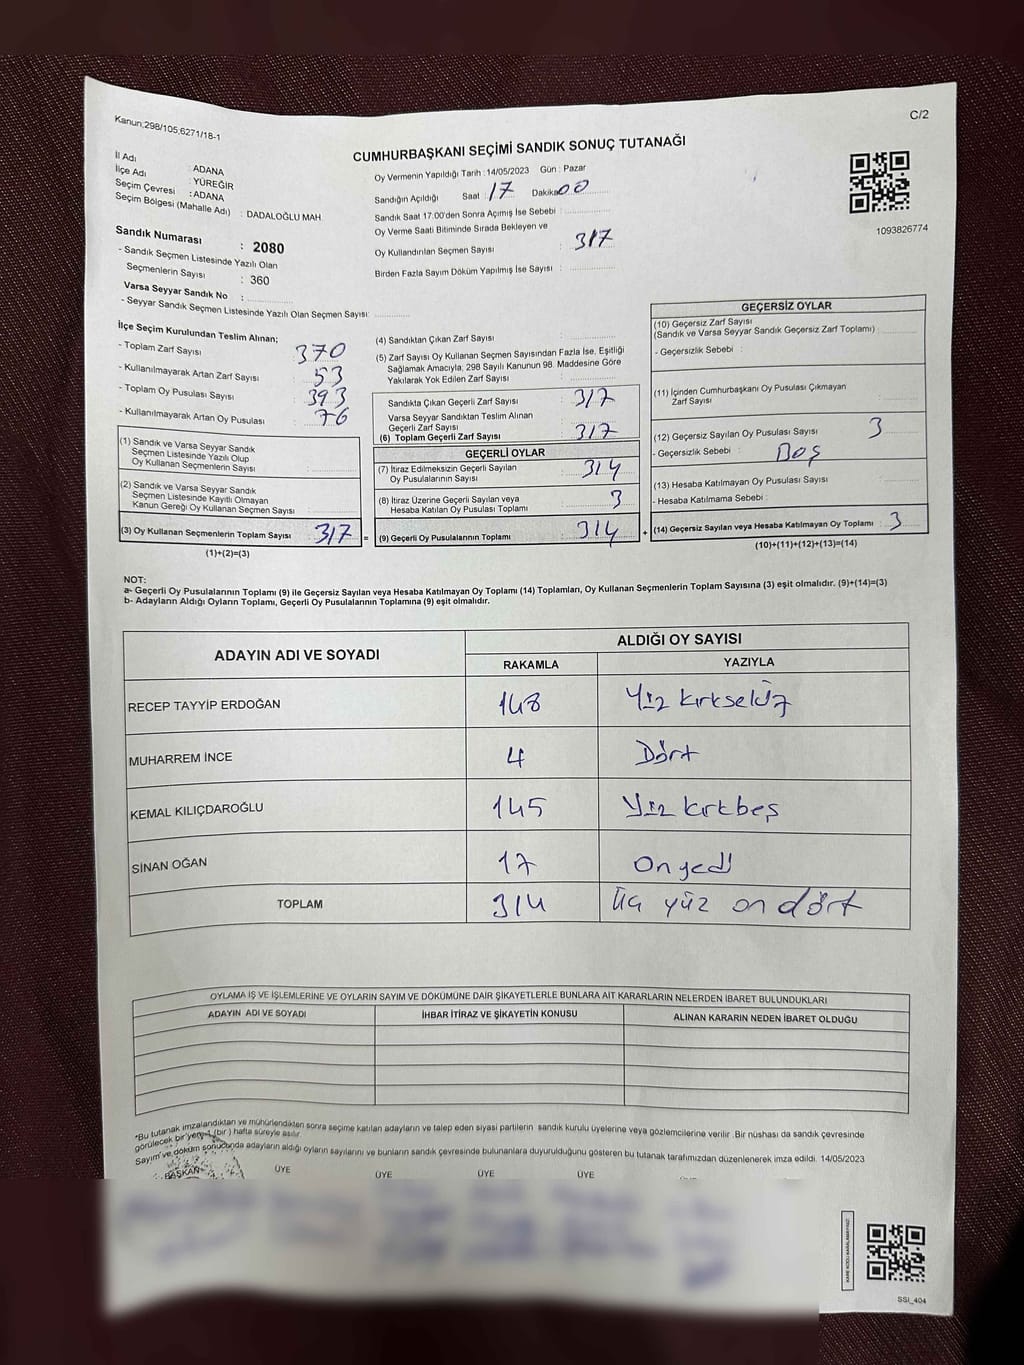 Kanun;298/105,6271/18-1
C/2
CUMHURBAŞKANI SEÇİMİ SANDIK SONUÇ TUTANAĞI
İl Adı : ADANA
İlçe Adı : YÜREĞİR
Seçim Çevresi : ADANA
Seçim Bölgesi (Mahalle Adı) : DADALOĞLU MAH.
Sandık Numarası : 2080
- Sandık Seçmen Listesinde Yazılı Olan
Seçmenlerin Sayısı : 360
Varsa Seyyar Sandık No :
- Seyyar Sandık Seçmen Listesinde Yazılı Olan Seçmen Sayısı:
Oy Vermenin Yapıldığı Tarih : 14/05/2023 Gün : Pazar
Sandığın Açıldığı Saat : 17 Dakika: 00
Sandık Saat 17:00'den Sonra Açımış İse Sebebi :
Oy Verme Saati Bitiminde Sırada Bekleyen ve
Oy Kullandırılan Seçmen Sayısı : 317
Birden Fazla Sayım Döküm Yapılmış İse Sayısı :
1093826774
İlçe Seçim Kurulundan Teslim Alınan;
- Toplam Zarf Sayısı : 370
- Kullanılmayarak Artan Zarf Sayısı : 53
- Toplam Oy Pusulası Sayısı : 393
- Kullanılmayarak Artan Oy Pusulası : 76
(1) Sandık ve Varsa Seyyar Sandık
Seçmen Listesinde Yazılı Olup
Oy Kullanan Seçmenlerin Sayısı :
(2) Sandık ve Varsa Seyyar Sandık
Seçmen Listesinde Kayıtlı Olmayan
Kanun Gereği Oy Kullanan Seçmen Sayısı :
(3) Oy Kullanan Seçmenlerin Toplam Sayısı : 317 =
(1)+(2)=(3)
(4) Sandıktan Çıkan Zarf Sayısı :
(5) Zarf Sayısı Oy Kullanan Seçmen Sayısından Fazla İse, Eşitliği
Sağlamak Amacıyla; 298 Sayılı Kanunun 98. Maddesine Göre
Yakılarak Yok Edilen Zarf Sayısı :
Sandıkta Çıkan Geçerli Zarf Sayısı : 317
Varsa Seyyar Sandıktan Teslim Alınan
Geçerli Zarf Sayısı :
(6) Toplam Geçerli Zarf Sayısı : 317
GEÇERLİ OYLAR
(7) İtiraz Edilmeksizin Geçerli Sayılan
Oy Pusulalarının Sayısı : 314
(8) İtiraz Üzerine Geçerli Sayılan veya
Hesaba Katılan Oy Pusulası Toplamı : 3
(9) Geçerli Oy Pusulalarının Toplamı : 314 +
GEÇERSİZ OYLAR
(10) Geçersiz Zarf Sayısı
(Sandık ve Varsa Seyyar Sandık Geçersiz Zarf Toplamı) :
- Geçersizlik Sebebi :
(11) İçinden Cumhurbaşkanı Oy Pusulası Çıkmayan
Zarf Sayısı :
(12) Geçersiz Sayılan Oy Pusulası Sayısı : 3
- Geçersizlik Sebebi : Boş
(13) Hesaba Katılmayan Oy Pusulası Sayısı :
- Hesaba Katılmama Sebebi :
(14) Geçersiz Sayılan veya Hesaba Katılmayan Oy Toplamı : 3
(10)+(11)+(12)+(13)=(14)
NOT:
a- Geçerli Oy Pusulalarının Toplamı (9) ile Geçersiz Sayılan veya Hesaba Katılmayan Oy Toplamı (14) Toplamları, Oy Kullanan Seçmenlerin Toplam Sayısına (3) eşit olmalıdır. (9)+(14)=(3)
b- Adayların Aldığı Oyların Toplamı, Geçerli Oy Pusulalarının Toplamına (9) eşit olmalıdır.
ADAYIN ADI VE SOYADI
ALDIĞI OY SAYISI
RAKAMLA YAZIYLA
RECEP TAYYİP ERDOĞAN 148 Yüz kırksekiz
MUHARREM İNCE 4 Dört
KEMAL KILIÇDAROĞLU 145 Yüz kırkbeş
SİNAN OĞAN 17 On yedi
TOPLAM 314 Üç yüz on dört
OYLAMA İŞ VE İŞLEMLERİNE VE OYLARIN SAYIM VE DÖKÜMÜNE DAİR ŞİKAYETLERLE BUNLARA AİT KARARLARIN NELERDEN İBARET BULUNDUKLARI
ADAYIN ADI VE SOYADI İHBAR İTİRAZ VE ŞİKAYETİN KONUSU ALINAN KARARIN NEDEN İBARET OLDUĞU
*Bu tutanak imzalandıktan ve mühürlendikten sonra seçime katılan adayların ve talep eden siyasi partilerin sandık kurulu üyelerine veya gözlemcilerine verilir .Bir nüshası da sandık çevresinde
görülecek bir yere 1 (bir ) hafta süreyle asılır.
Sayım ve döküm sonucunda adayların aldığı oyların sayılarını ve bunların sandık çevresinde bulunanlara duyurulduğunu gösteren bu tutanak tarafımızdan düzenlenerek imza edildi. 14/05/2023
BAŞKAN ÜYE ÜYE ÜYE ÜYE
SSI_404